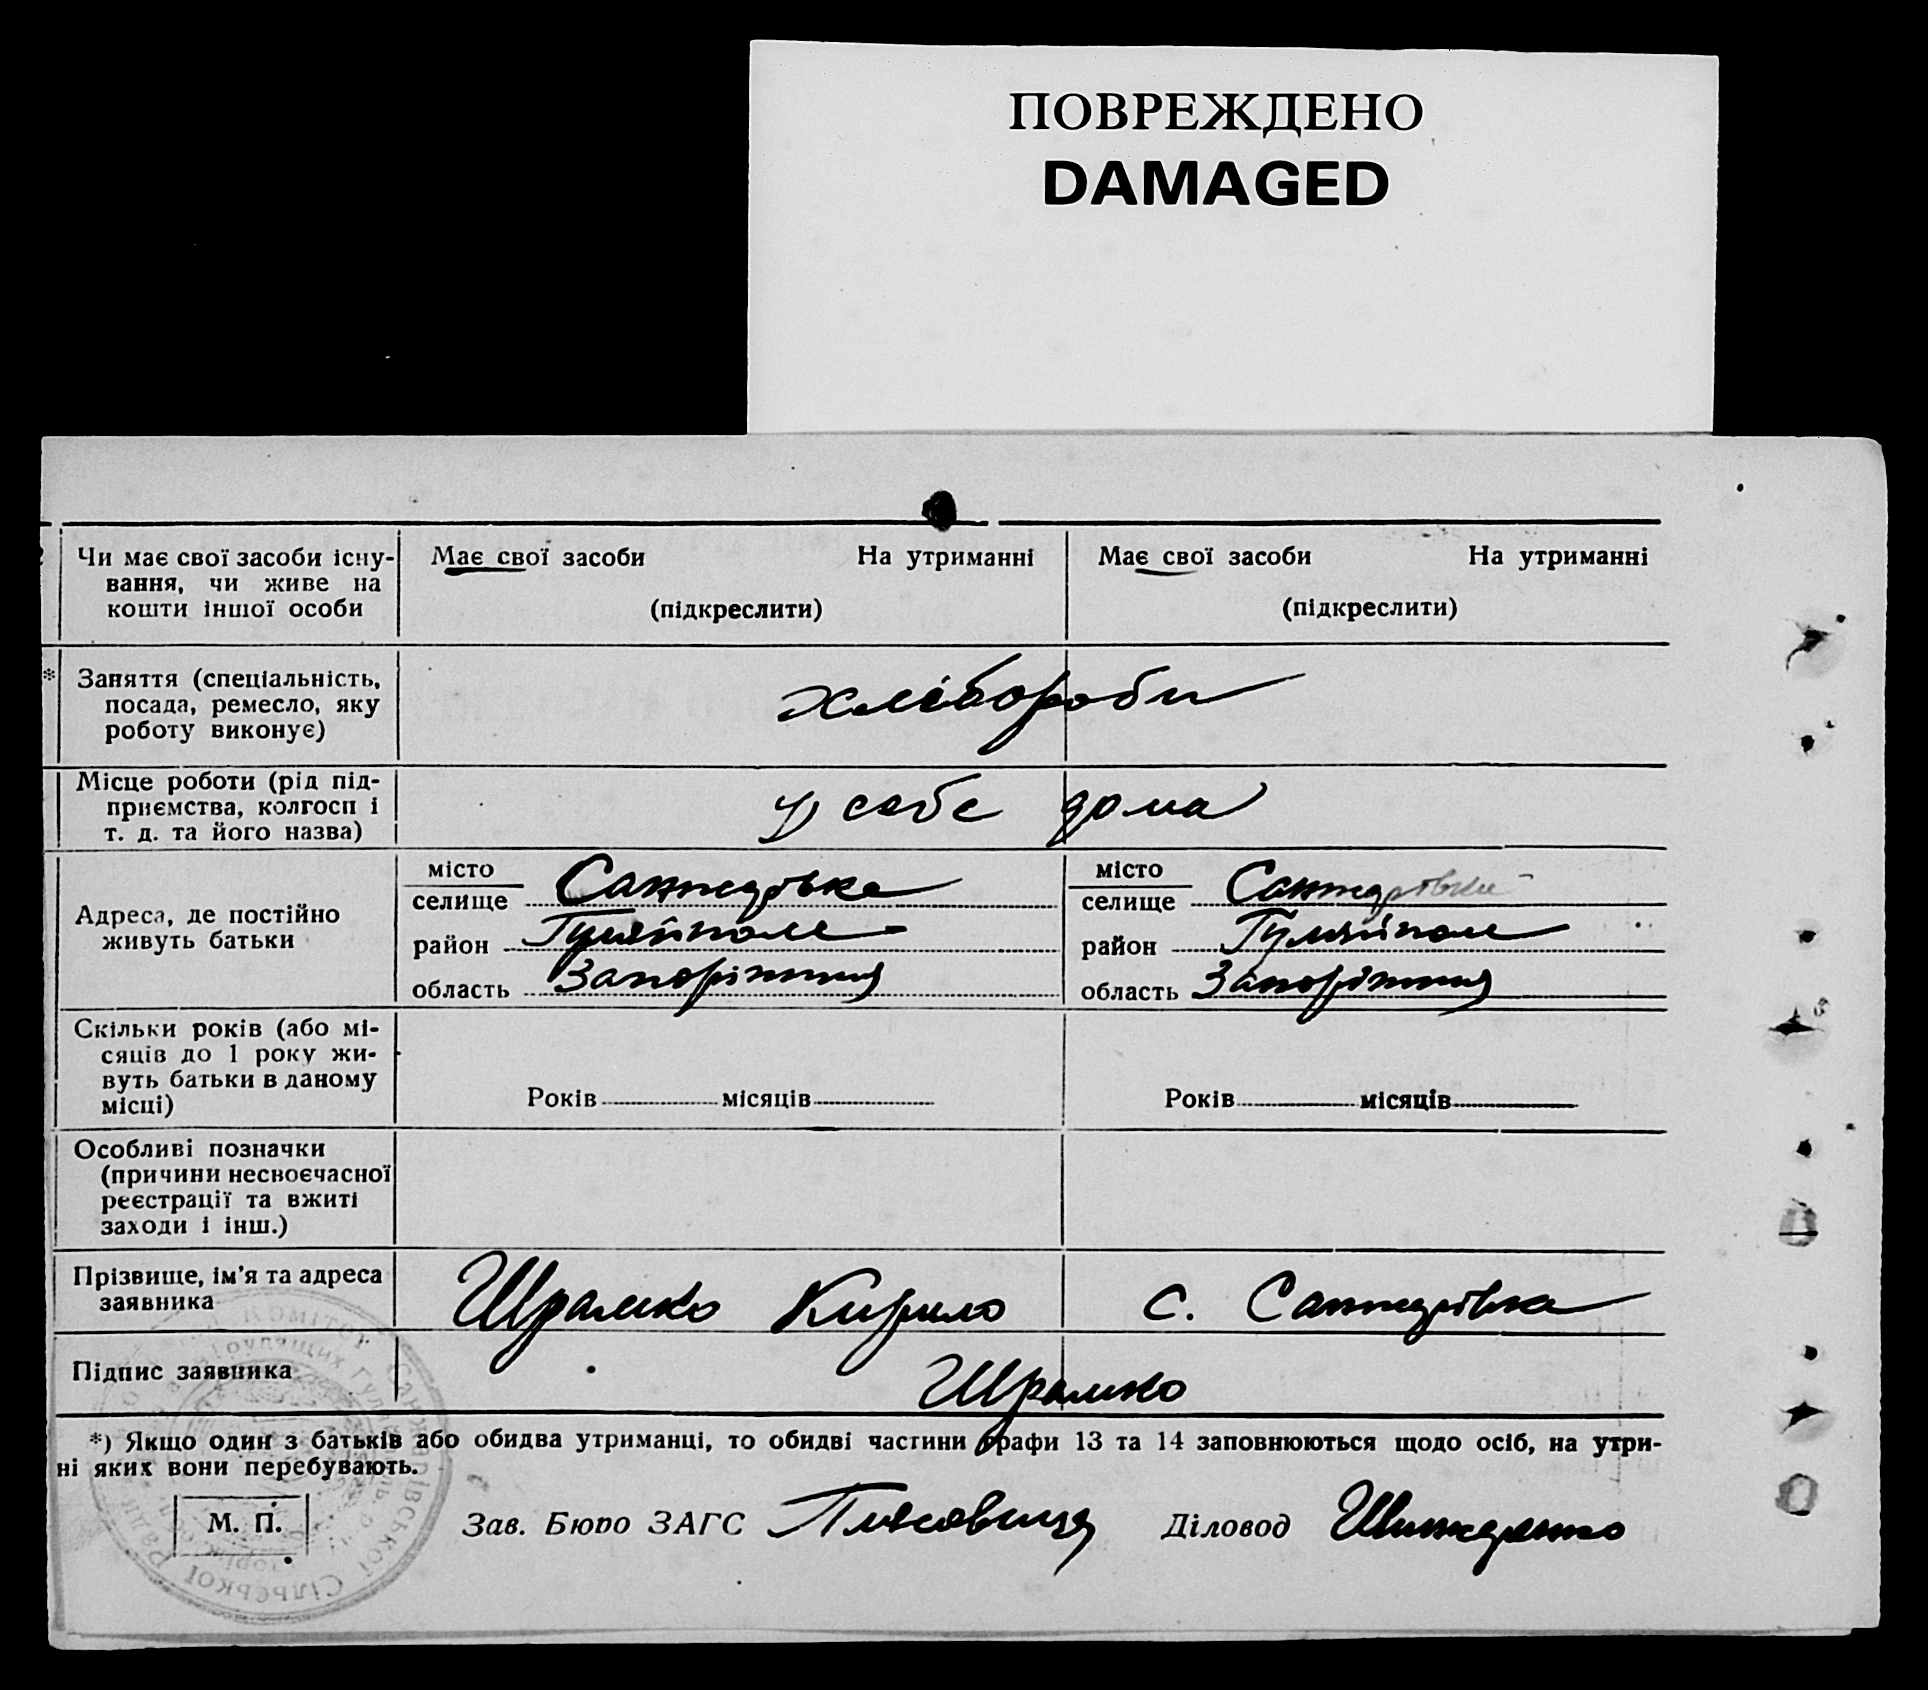 ПОВРЕЖДЕНО
DAMAGED
Чи має свої засоби існу-
вання, чи живе на
кошти іншої особи
Має свої засоби На утриманні
(підкреслити)
Має свої засоби На утриманні
(підкреслити)
* Заняття (спеціальність,
посада, ремесло, яку
роботу виконує)
хлібороби
Місце роботи (рід під-
приємства, колгосп і
т. д. та його назва)
у себе дома
Адреса, де постійно
живуть батьки
місто
селище Санжарівка
район Гуляйполе
область Запоріжжя
місто
селище Санжарівка
район Гуляйполе
область Запоріжжя
Скільки років (або мі-
сяців до 1 року жи-
вуть батьки в даному
місці)
Років місяців
Років місяців
Особливі позначки
(причини несвоєчасної
реєстрації та вжиті
заходи і інш.)
Прізвище, ім'я та адреса
заявника
Шрамко Кирило с. Санжарівка
Підпис заявника
Шрамко
*) Якщо один з батьків або обидва утриманці, то обидві частини графи 13 та 14 заповнюються щодо осіб, на утри-
ні яких вони перебувають.
М. П.
Зав. Бюро ЗАГС Діловод